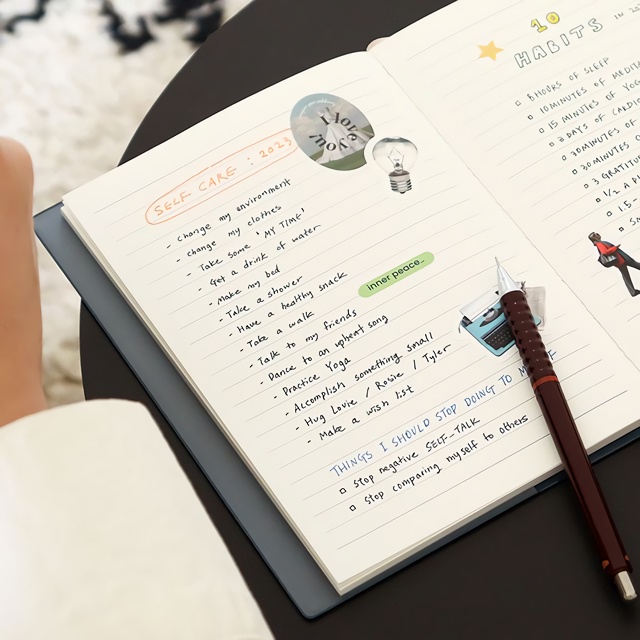 I love you!
SELF CARE : 2023
- change my environment
- change my clothes
- Take some 'MY TIME'
- Get a drink of water
- Make my bed
- Take a shower
- Have a healthy snack
- Take a walk
- Talk to my friends
- Dance to an upbeat song
- Practice Yoga
- Accomplish something small
- Hug Louie / Rosie / Tyler
- Make a wish list
inner peace..
THINGS I SHOULD STOP DOING TO
stop negative SELF-TALK
stop comparing myself to others
10
HABITS IN
8 HOURS OF SLEEP
10 MINUTES OF
15 MINUTES OF
2 DAYS OF
30 MINUTES OF
30 MINUTES
3
1/2 A
1.5-